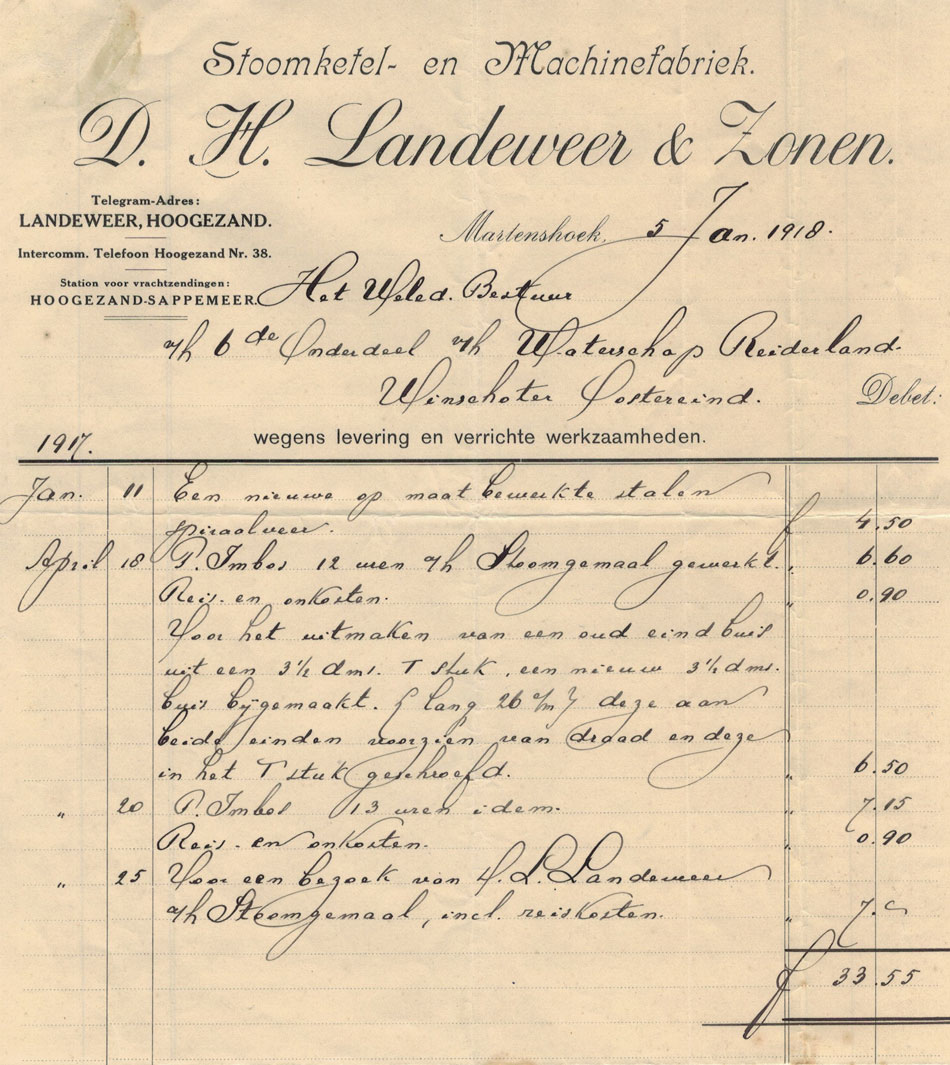 Stoomketel- en Machinefabriek.
D. H. Landeweer & Zonen.
Telegram-Adres:
LANDEWEER, HOOGEZAND.
Intercomm. Telefoon Hoogezand Nr. 38.
Station voor vrachtzendingen:
HOOGEZAND-SAPPEMEER.
Martenshoek, 5 Jan. 1918.
Het Weled. Bestuur
v/h 6de Onderdeel v/h Waterschap Reiderland.
Winschoter Oostereind.
Debet:
1917.
wegens levering en verrichte werkzaamheden.
Jan. 11 Een nieuwe op maat bewerkte stalen
spiraalveer. f 4.50
April 18 P. Imbos 12 uren a/h Stoomgemaal gewerkt. " 6.60
Reis- en onkosten. " 0.90
Voor het uitmaken van een oud eind buis
uit een 3½ dms. T stuk, een nieuw 3½ dms.
buis bijgemaakt. ( lang 26 c/m ) deze aan
beide einden voorzien van draad en deze
in het T stuk geschroefd. " 6.50
" 20 P. Imbos 13 uren idem. " 7.15
Reis- en onkosten. " 0.90
" 25 Voor een bezoek van H. L. Landeweer
a/h Stoomgemaal, incl. reiskosten. " 7.-
f 33.55